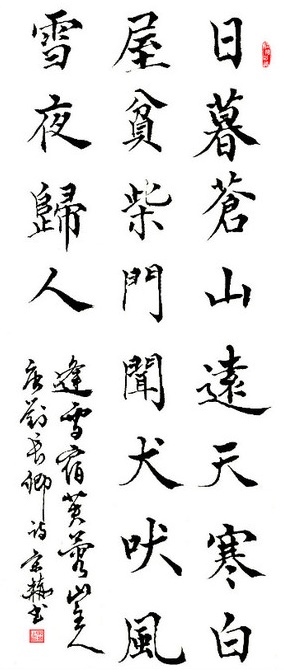 日暮蒼山遠天寒白
屋貧柴門聞犬吠風
雪夜歸人
逢雪宿芙蓉山主人
唐劉長卿诗